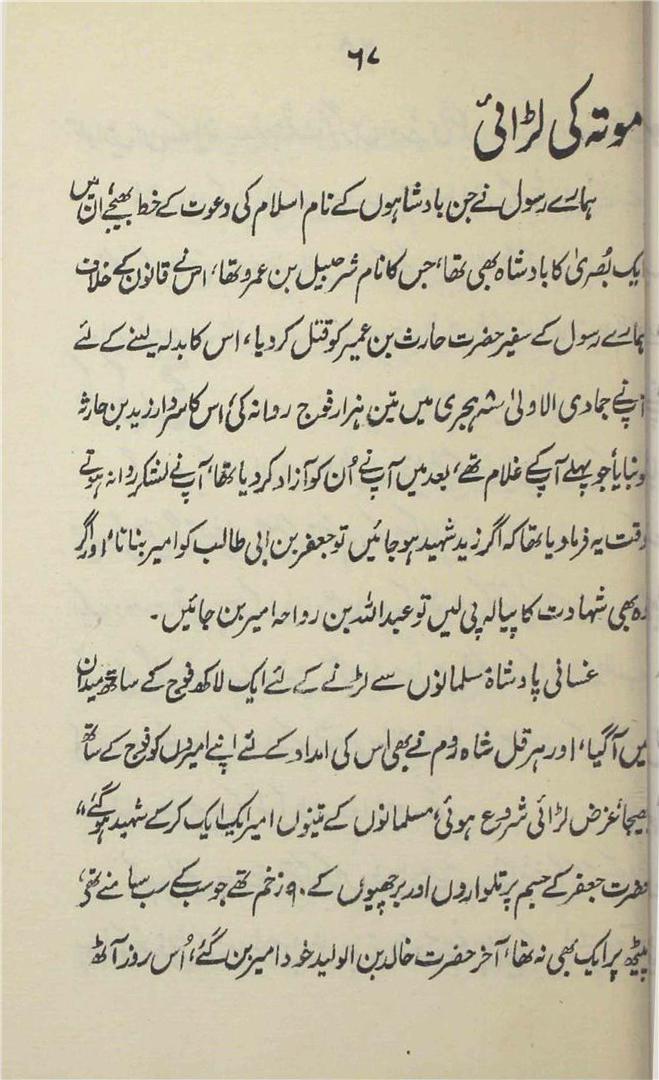 ۶۷
موتہ کی لڑائی
ہمارے رسول نے جن بادشاہوں کے نام اسلام کی دعوت کے خط بھیجے اُن میں
ایک بُصریٰ کا بادشاہ بھی تھا، جس کا نام شرحبیل بن عمرو تھا، اس نے قانون کے خلاف
ہمارے رسول کے سفیر حضرت حارث بن عمیر کو قتل کر دیا، اس کا بدلہ لینے کے لئے
آپ نے جمادی الاولیٰ ۸ ہجری میں تین ہزار فوج روانہ کی، اس کا سردار زید بن حارثہ
کو بنایا، جو پہلے آپ کے غلام تھے، بعد میں آپ نے اُن کو آزاد کر دیا تھا، آپ نے لشکر روانہ ہوتے
وقت یہ فرما دیا تھا کہ اگر زید شہید ہو جائیں تو جعفر بن ابی طالب کو امیر بنانا، اور اگر
وہ بھی شہادت کا پیالہ پی لیں تو عبداللہ بن رواحہ امیر بن جائیں۔
غسانی پادشاہ مسلمانوں سے لڑنے کے لئے ایک لاکھ فوج کے ساتھ میدان
میں آگیا، اور ہرقل شاہ روم نے بھی اس کی امداد کے لئے اپنے امیروں کو فوج کے ساتھ
بھیجا، غرض لڑائی شروع ہوئی، مسلمانوں کے تینوں امیر ایک ایک کر کے شہید ہو گئے،
حضرت جعفر کے جسم پر تلواروں اور برچھیوں کے ۹۰ زخم تھے جو سب کے سب سامنے تھے،
پیٹھ پر ایک بھی نہ تھا، آخر حضرت خالد بن الولید خود امیر بن گئے، اُس روز آٹھ